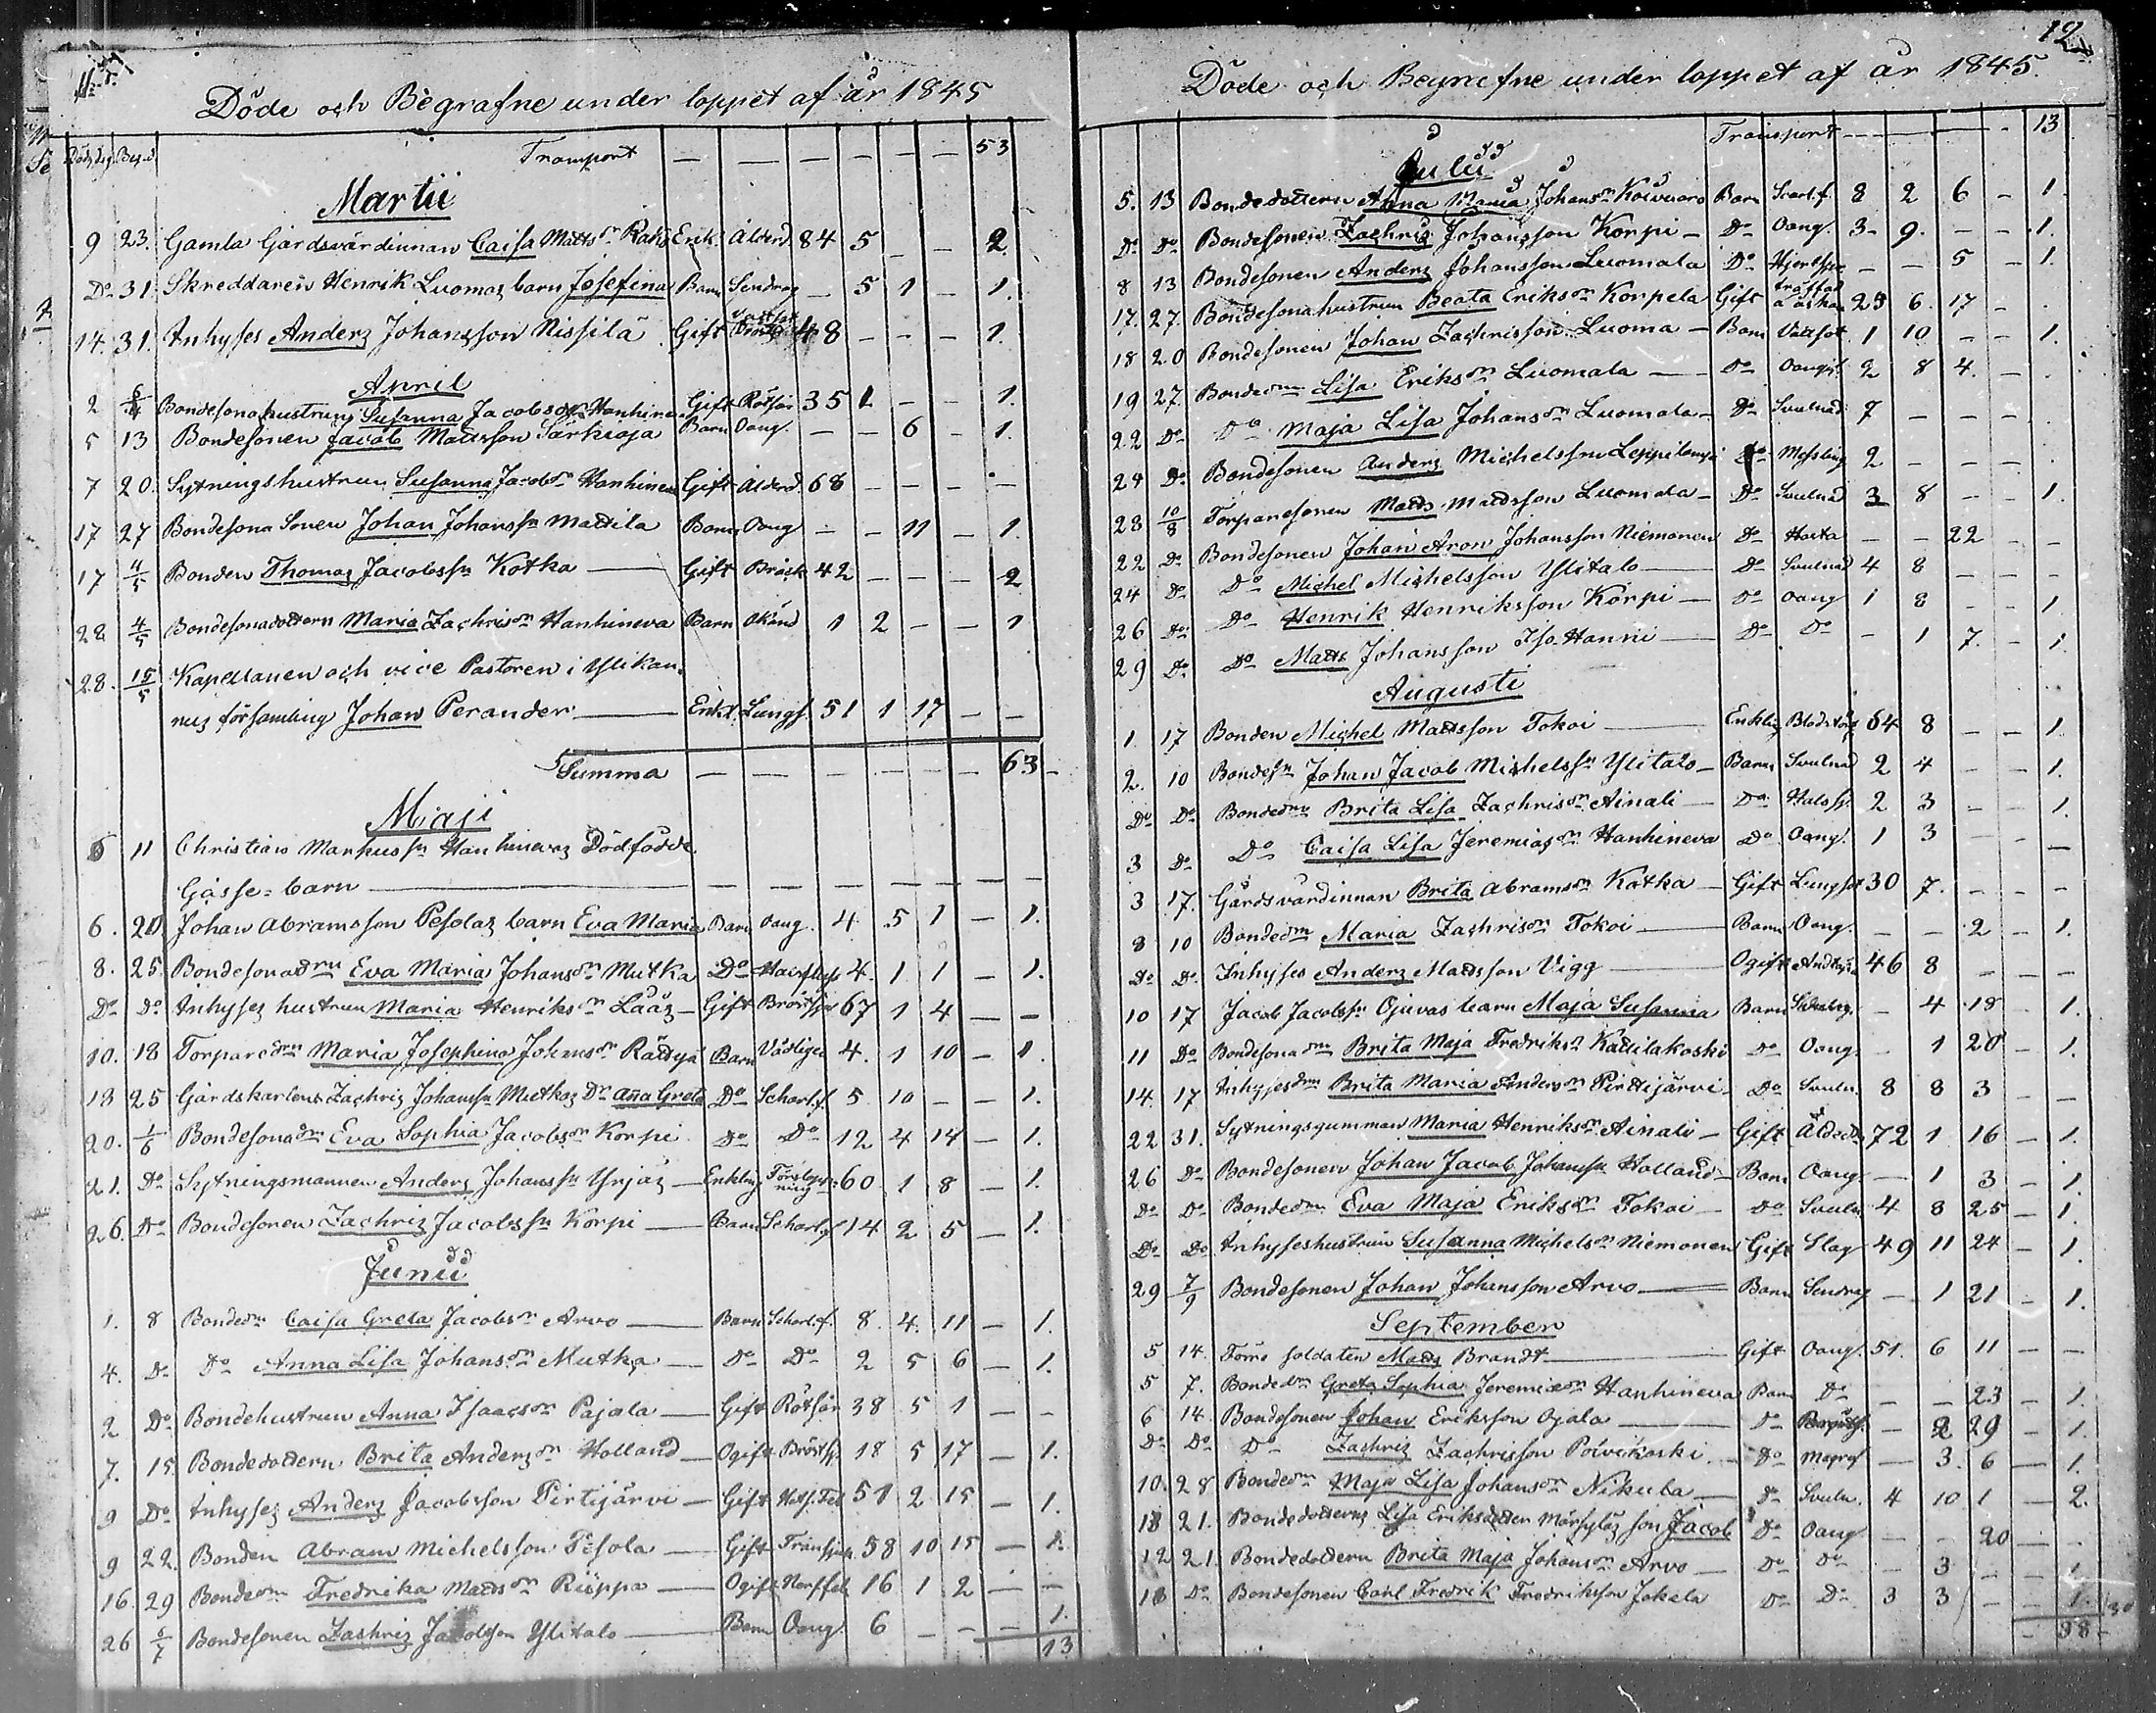 Döde och Begrafne under loppet af år 1845
Dödsdag Beg.d.
Transport — — — — — — 53
Martii
9 23. Gamla Gårdsvärdinnan Caisa Matts dr Enk. Ålderd. 84 5 — — 2.
Do 31. Skreddaren Henrik Luomas barn Josefina Barn Sendrag — 5 1 — 1.
14. 31. Inhyses Anders Johansson Nissilä Gift 48 — — — 1.
April
2 6/4 Bondesonahustrun Susanna Jacobsdr Hanhineva Gift Rötfår 35 1 — — 1.
5 13 Bondesonen Jacob Mattsson Särkioja Barn Oang. — — 6 — 1.
7 20. Sytningshustrun Susanna Jacobsdr Hanhineva Gift Ålderd. 68 — — — —
17 27 Bondesona Sonen Johan Johanssn Mattila Barn Oang — — 11 — 1.
17 4/5 Bonden Thomas Jacobssn Kotka — Gift Bråck 42 — — — 2
22 4/5 Bondesonadottern Maria Zachrisdr Hanhineva Barn Okänd 1 2 — — 1
28. 15/5 Kapellanen och vice Pastoren i Ylikan-
nus församling Johan Perander — Enkl. Lungs. 51 1 17 — —
Summa — — — — — — 63 —
Maji
6 11 Christian Markussn Hanhinevas Dödfödde
Gosse-barn — — — — — — — —
6. 20 Johan Abramsson Pesolas barn Eva Maria Barn Oang. 4. 5 1 — 1.
8. 25. Bondesonadrn Eva Maria Johansdr Mutka Do 4. 1 1 — 1.
Do Do Inhyses hustrun Maria Henriksdr Lääs — Gift Bröstsju 67 1 4 — —
10. 18 Torparedrn Maria Josephina Johansdr Räihä Barn Vådligen 4. 1 10 — 1.
18 25 Gårdskarlens Zachris Johanssn Mutkas Dr Aña Greta Do Scharl.f. 5 10 — — 1.
20. 1/6 Bondesonadrn Eva Sophia Jacobsdr Korpi Do Do 12 4 14 — 1.
21. Do Sytningsmannen Anders Johanssn Yrjäs — Enkling 60 1 8 — 1.
26. Do Bondesonen Zachris Jacobssn Korpi — Barn Scharl.f 14 2 5 — 1.
Junii
1. 8 Bondedrn Caisa Greta Jacobsdr Arvo — Barn Scharl.f. 8. 4. 11 — 1.
4. Do Do Anna Lisa Johansdr Mutka — Do Do 2 5 6 — 1.
2 Do Bondehustrun Anna Isaacsdr Pajala — Gift Rötfår 38 5 1 — —
7. 15 Bondedottern Brita Andersdr Holland — Ogift Bröstsj. 18 5 17 — 1.
9 Do Inhyses Anders Jacobsson Pirtijärvi — Gift 51 2 15 — 1.
9 22. Bonden Abram Michelsson Pesola — Gift 58 10 15 — 1.
16. 29 Bondedrn Fredrika Mattsdr Riippa — Ogift Nerffeb 16 1 2 — —
26 6/7 Bondesonen Zachris Jacobsson Ylitalo — Barn Oang. 6 — — — 1.
13
12
Döde och Begrafne under loppet af år 1845.
Transport — — — 13
Julii
5. 13 Bondedottern Anna Maria Johansdr Koivuaro Barn Scarl.f. 8 2 6 — 1.
Do Do Bondesonen Zachris Johansson Korpi — Do Oang. 3 9. — — 1.
8 13 Bondesonen Anders Johansson Luomala Do — — 5 — 1.
17. 27. Bondesonahustrun Beata Eriksdr Korpela Gift träffad a åskan 25 6. 17 —
18 20 Bondesonen Johan Zachrisson Luoma — Barn 1 10 — — 1.
19 27. Bondedrn Lisa Eriksdr Luomala — Do Oang. 2 8 4. —
22 Do Do Maja Lisa Johansdr Luomala — Do Svulnad 7 — — —
24 Do Bondesonen Anders Michelsson Do Messling 2 — — —
28 10/8 Torparesonen Matts Mattsson Luomala — Do Svulnad 3 8 — — 1.
22 Do Bondesonen Johan Aron Johansson Niemonen Do Hosta — — 22 — —
24 Do Do Michel Michelsson Ylitalo — Do Svulnad 4 8 — — —
26 Do Do Henrik Henriksson Korpi — Do Oang 1 8 — — 1
29 Do Do Matts Johansson Iso Hanni — Do Do — 1 7. 1.
Augusti
1. 17 Bonden Michel Mattsson Tokoi — Enkling 64 8 — — 1.
2. 10 Bondesn Johan Jacob Michelssn Ylitalo — Barn Svulnad 2 4 — — 1.
Do Do Bondedrn Brita Lisa Zachrisdr Ainali — Do Halssj. 2 3 — — 1.
3 Do Do Caisa Lisa Jeremiasdr Hanhineva Do Oang. 1 3 — —
3 17. Gårdsvärdinnan Brita Abramsdr Kotka — Gift Lungsot 30 7. — — —
8 10 Bondedrn Maria Zachrisdr Tokoi — Barn Oang. — — 2 — 1.
Do Do Inhyses Anders Mattsson Vigg — Ogift 46 8 — — —
10 17 Jacob Jacobssn Ojuvas barn Maja Susanna Barn — 4 18 — 1.
11 Do Bondesonadrn Brita Maja Fredriksdr Kattilakoski Do Oang. — 1 20 — 1.
14. 17 Inhysesdrn Brita Maria Andersdr Pirttijärvi — Do Svuln. 8 8 3 — —
22 31. Sytningsgumman Maria Henriksdr Ainali — Gift Ålderd. 72 1 16 — 1.
26 Do Bondesonen Johan Jacob Johanssn Holland — Barn Oang — 1 3 — 1.
Do Do Bondedrn Eva Maja Eriksdr Tokoi — Do Svuln 4 8 25 — 1.
Do Do Inhyseshustrun Susanna Michelsdr Niemonen Gift Slag 49 11 24 — 1.
29 7/9 Bondesonen Johan Johansson Arvo — Barn Sendrag — 1 21 — 1.
September
5 14. Förre soldaten Matts Brandt — Gift Oang. 51. 6 11 — —
5 7. Bondedrn Greta Sophia Jeremiædr Hanhineva Barn Do — — 23 — 1.
6 14. Bondesonen Johan Eriksson Ojala — Do — 2 29 — 1.
Do Do Do Zachris Zachrisson Polvikoski — Do — 3. 6 — 1.
10. 28 Bondedrn Maja Lisa Johansdr Nikula — Do Svuln. 4 10 1 — 2.
18 21. Bondedotterns Lisa Eriksdotter Märsyläs son Jacob Do Oang — — 20 — .
12 21. Bondedottern Brita Maja Johansdr Arvo — Do Do — 3 — — 1
18 Do Bondesonen Carl Fredrik Fredriksson Jokela Do Do 3 3 — — 1.
38 —